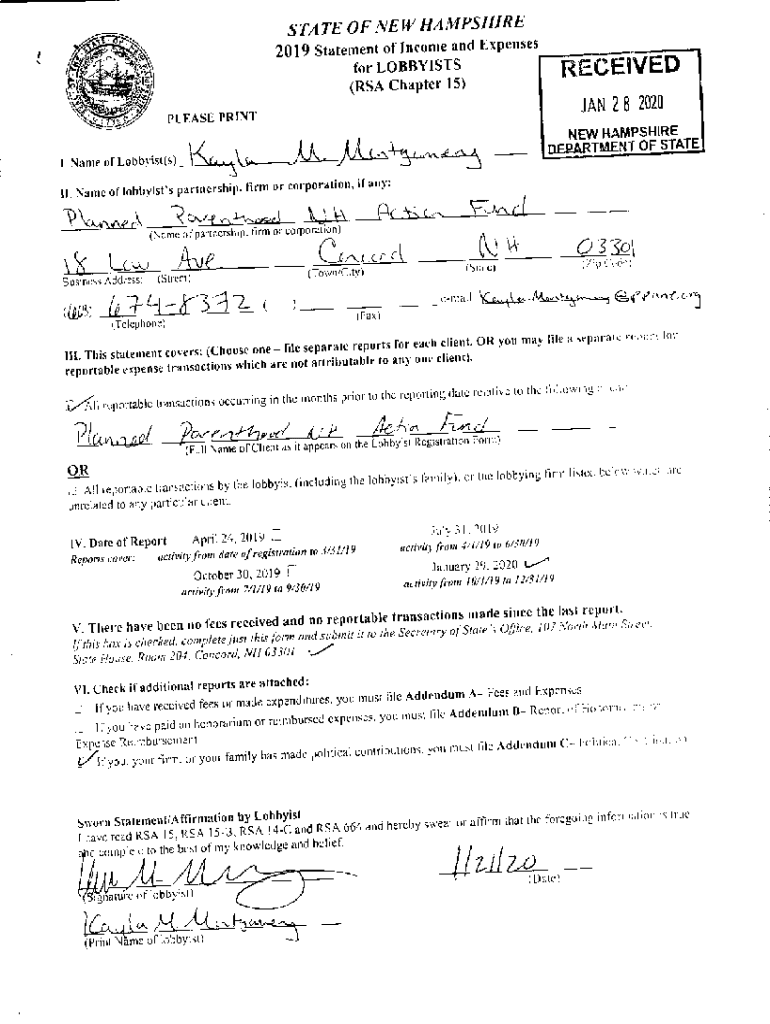 STATE OF NEW HAMPSHIRE
2019 Statement of Income and Expenses
for LOBBYISTS
(RSA Chapter 15)
RECEIVED
JAN 28 2020
NEW HAMPSHIRE
DEPARTMENT OF STATE
PLEASE PRINT
I. Name of Lobbyist(s) Kayla M. Montgomery
II. Name of lobbyist's partnership, firm or corporation, if any:
Planned Parenthood NH Action Fund
(Name of partnership, firm or corporation)
18 Low Ave Concord NH 03301
Business Address: (Street) (Town/City) (State) (Zip Code)
(603) 674-8372 ( ) e-mail
(Telephone) (Fax)
III. This statement covers: (Choose one – file separate reports for each client, OR you may file a separate report for
reportable expense transactions which are not attributable to any one client).
All reportable transactions occurring in the months prior to the reporting date relative to the following client
Planned Parenthood NH Action Fund
(Full Name of Client as it appears on the Lobbyist Registration Form)
OR
All reportable transactions by the lobbyist (including the lobbyist's family), or the lobbying firm listed below which are
unrelated to any particular client.
IV. Date of Report April 24, 2019 July 31, 2019
Reports cover: activity from date of registration to 3/31/19 activity from 4/1/19 to 6/30/19
October 30, 2019 January 29, 2020 ✓
activity from 7/1/19 to 9/30/19 activity from 10/1/19 to 12/31/19
V. There have been no fees received and no reportable transactions made since the last report.
If this box is checked, complete just this form and submit it to the Secretary of State's Office, 107 North Main Street,
State House, Room 204, Concord, NH 03301 ✓
VI. Check if additional reports are attached:
If you have received fees or made expenditures, you must file Addendum A– Fees and Expenses
If you have paid an honorarium or reimbursed expenses, you must file Addendum B– Report of Honorarium or
Expense Reimbursement
✓ If you, your firm, or your family has made political contributions, you must file Addendum C– Political Contribution
Sworn Statement/Affirmation by Lobbyist
I have read RSA 15, RSA 15-B, RSA 14-C and RSA 664 and hereby swear or affirm that the foregoing information is true
and complete to the best of my knowledge and belief.
1/21/20
(Signature of lobbyist) (Date)
Kayla M Montgomery
(Print Name of lobbyist)